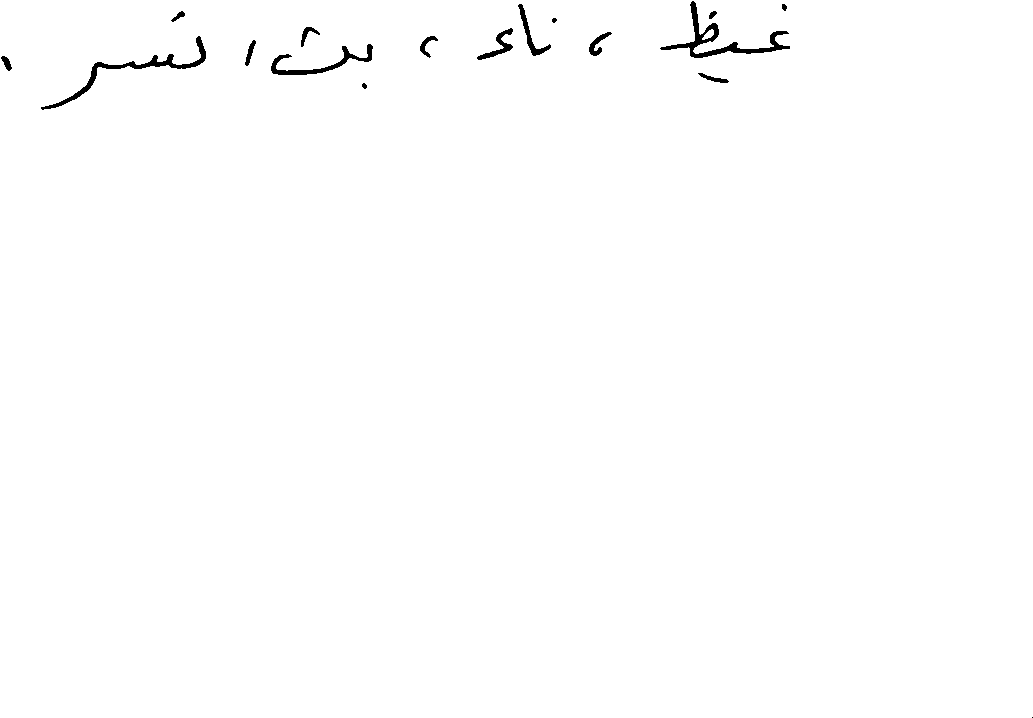 غيظ ، ناء ، بث ، تسر .